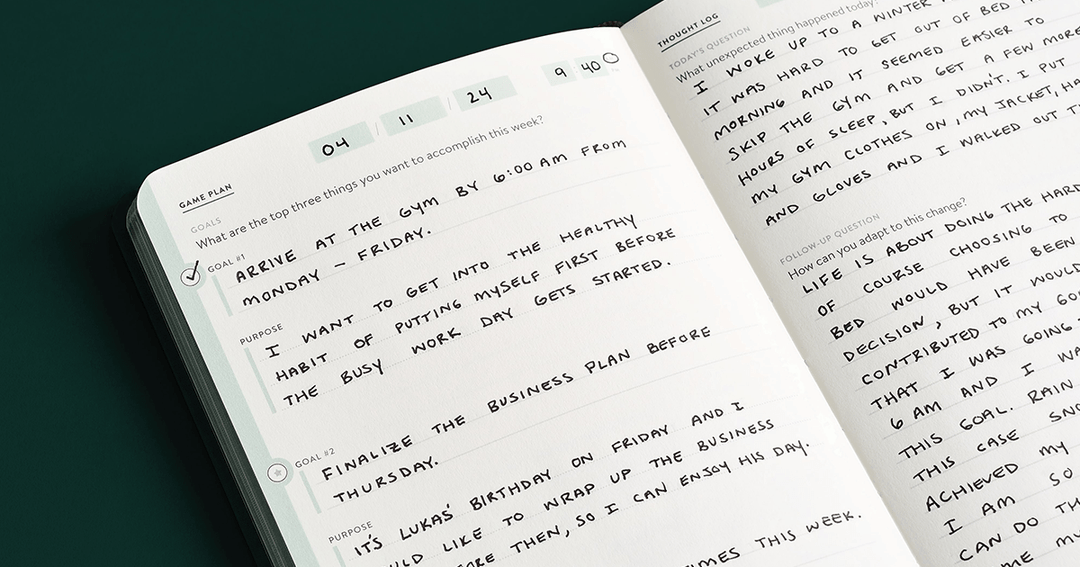 GAME PLAN
04 / 11 / 24
9 40
GOALS
What are the top three things you want to accomplish this week?
GOAL #1
ARRIVE AT THE GYM BY 6:00 AM FROM
MONDAY – FRIDAY.
PURPOSE
I WANT TO GET INTO THE HEALTHY
HABIT OF PUTTING MYSELF FIRST BEFORE
THE BUSY WORK DAY GETS STARTED.
GOAL #2
FINALIZE THE BUSINESS PLAN BEFORE
THURSDAY.
PURPOSE
IT'S LUKAS' BIRTHDAY ON FRIDAY AND I
LIKE TO WRAP UP THE BUSINESS
THEN, SO I CAN ENJOY HIS DAY.
THIS WEEK.
THOUGHT LOG
TODAY'S QUESTION
What unexpected thing happened today?
I WOKE UP TO A WINTER
IT WAS HARD TO GET OUT OF BED
MORNING AND IT SEEMED EASIER TO
SKIP THE GYM AND GET A FEW MORE
HOURS OF SLEEP, BUT I DIDN'T. I PUT
MY GYM CLOTHES ON, MY JACKET,
AND GLOVES AND I WALKED OUT
FOLLOW-UP QUESTION
How can you adapt to this change?
LIFE IS ABOUT DOING THE HARD
OF COURSE CHOOSING TO
BED WOULD HAVE BEEN
DECISION, BUT IT WOULD
CONTRIBUTED TO MY
THAT I WAS GOING
6 AM AND I
THIS GOAL. RAIN
THIS CASE
ACHIEVED MY
I AM SO
CAN DO